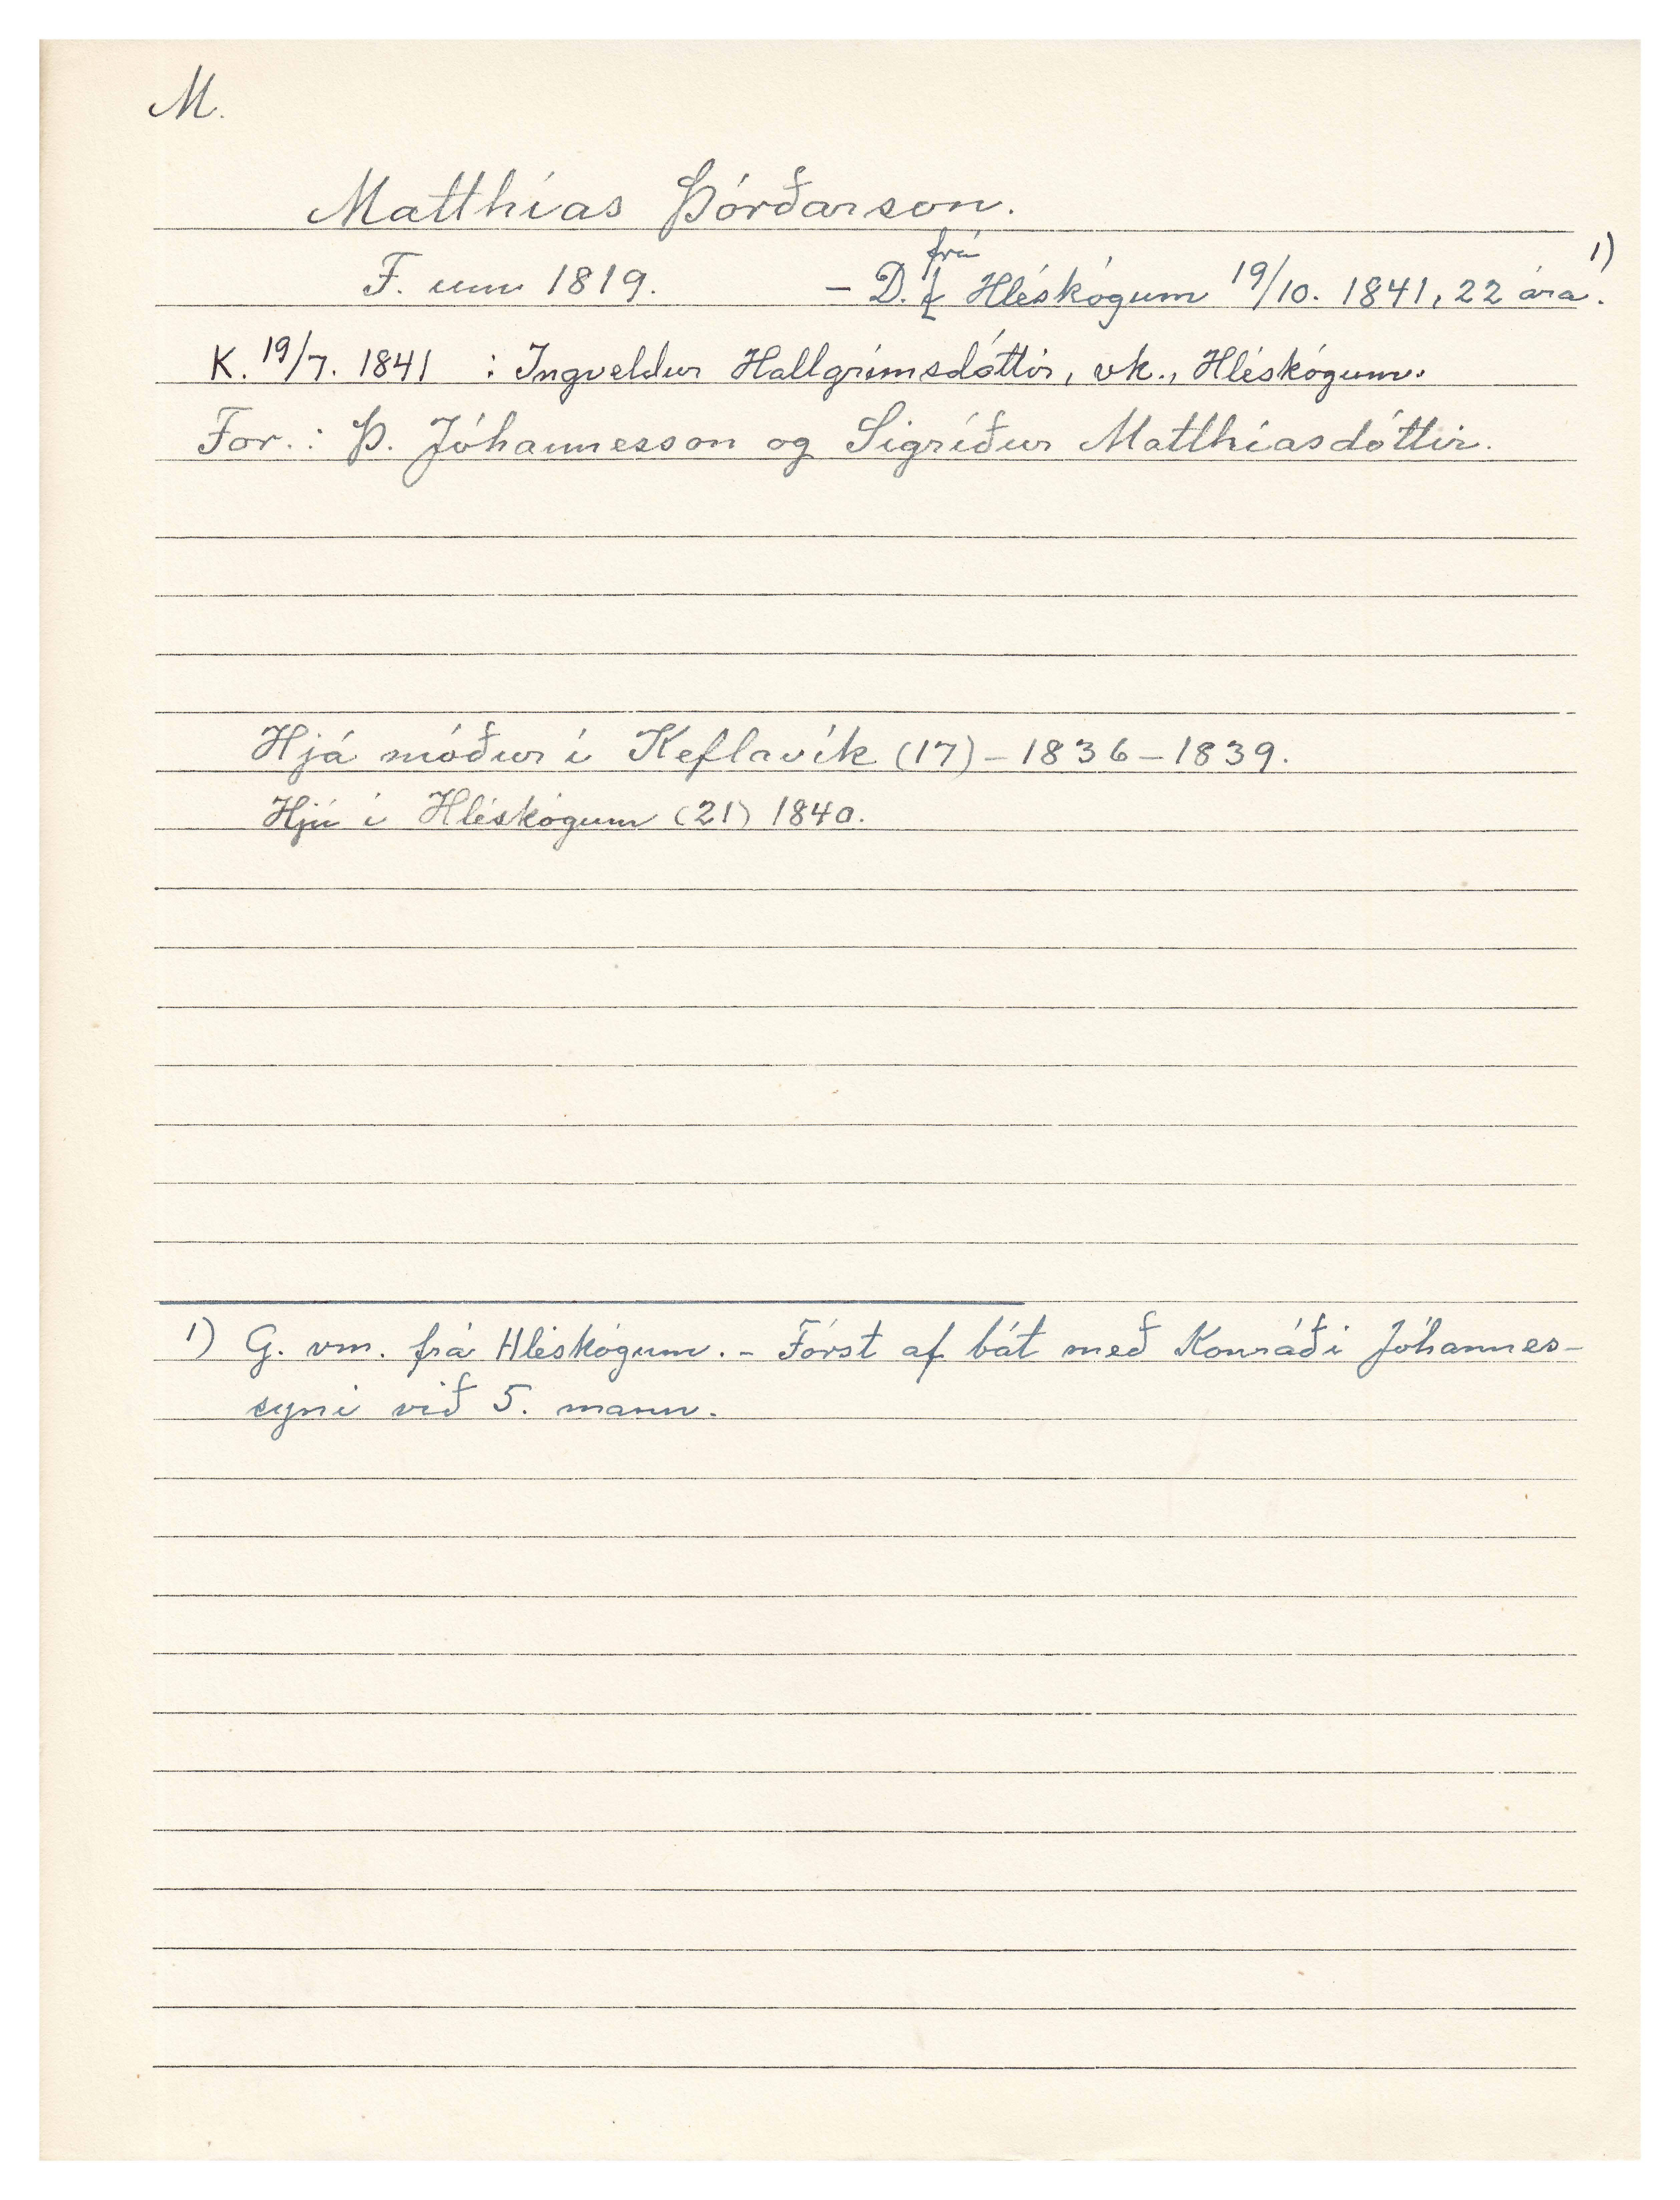 M.
Matthías Þórðarson.
F. um 1819. – D. frá Hléskógum 19/10. 1841, 22 ára. 1)
K. 19/7. 1841 : Ingveldur Hallgrímsdóttir, vk., Hléskógum.
For.: Þ. Jóhannesson og Sigríður Matthíasdóttir.
Hjá móður í Keflavík (17) – 1836 – 1839.
Hjú í Hléskógum (21) 1840.
1) G. vm. frá Hléskógum. – Fórst af bát með Konráði Jóhannes-
syni við 5. mann.